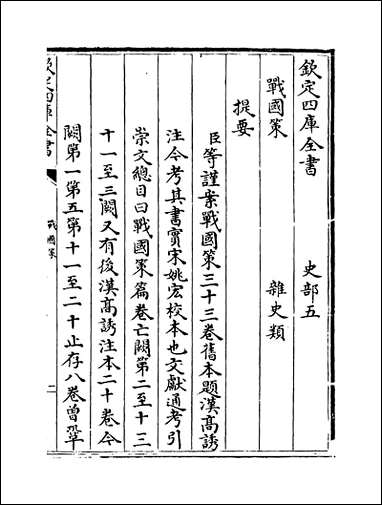 欽定四庫全書 史部五
戰國策 雜史類
提要
臣等謹案戰國策三十三卷舊本題漢高誘
注今考其書實宋姚宏校本也文獻通考引
崇文總目曰戰國策篇卷亡闕第二至十三
十一至三闕又有後漢高誘注本二十卷今
闕第一第五第十一至二十止存八卷曾鞏
欽定四庫全書 戰國策